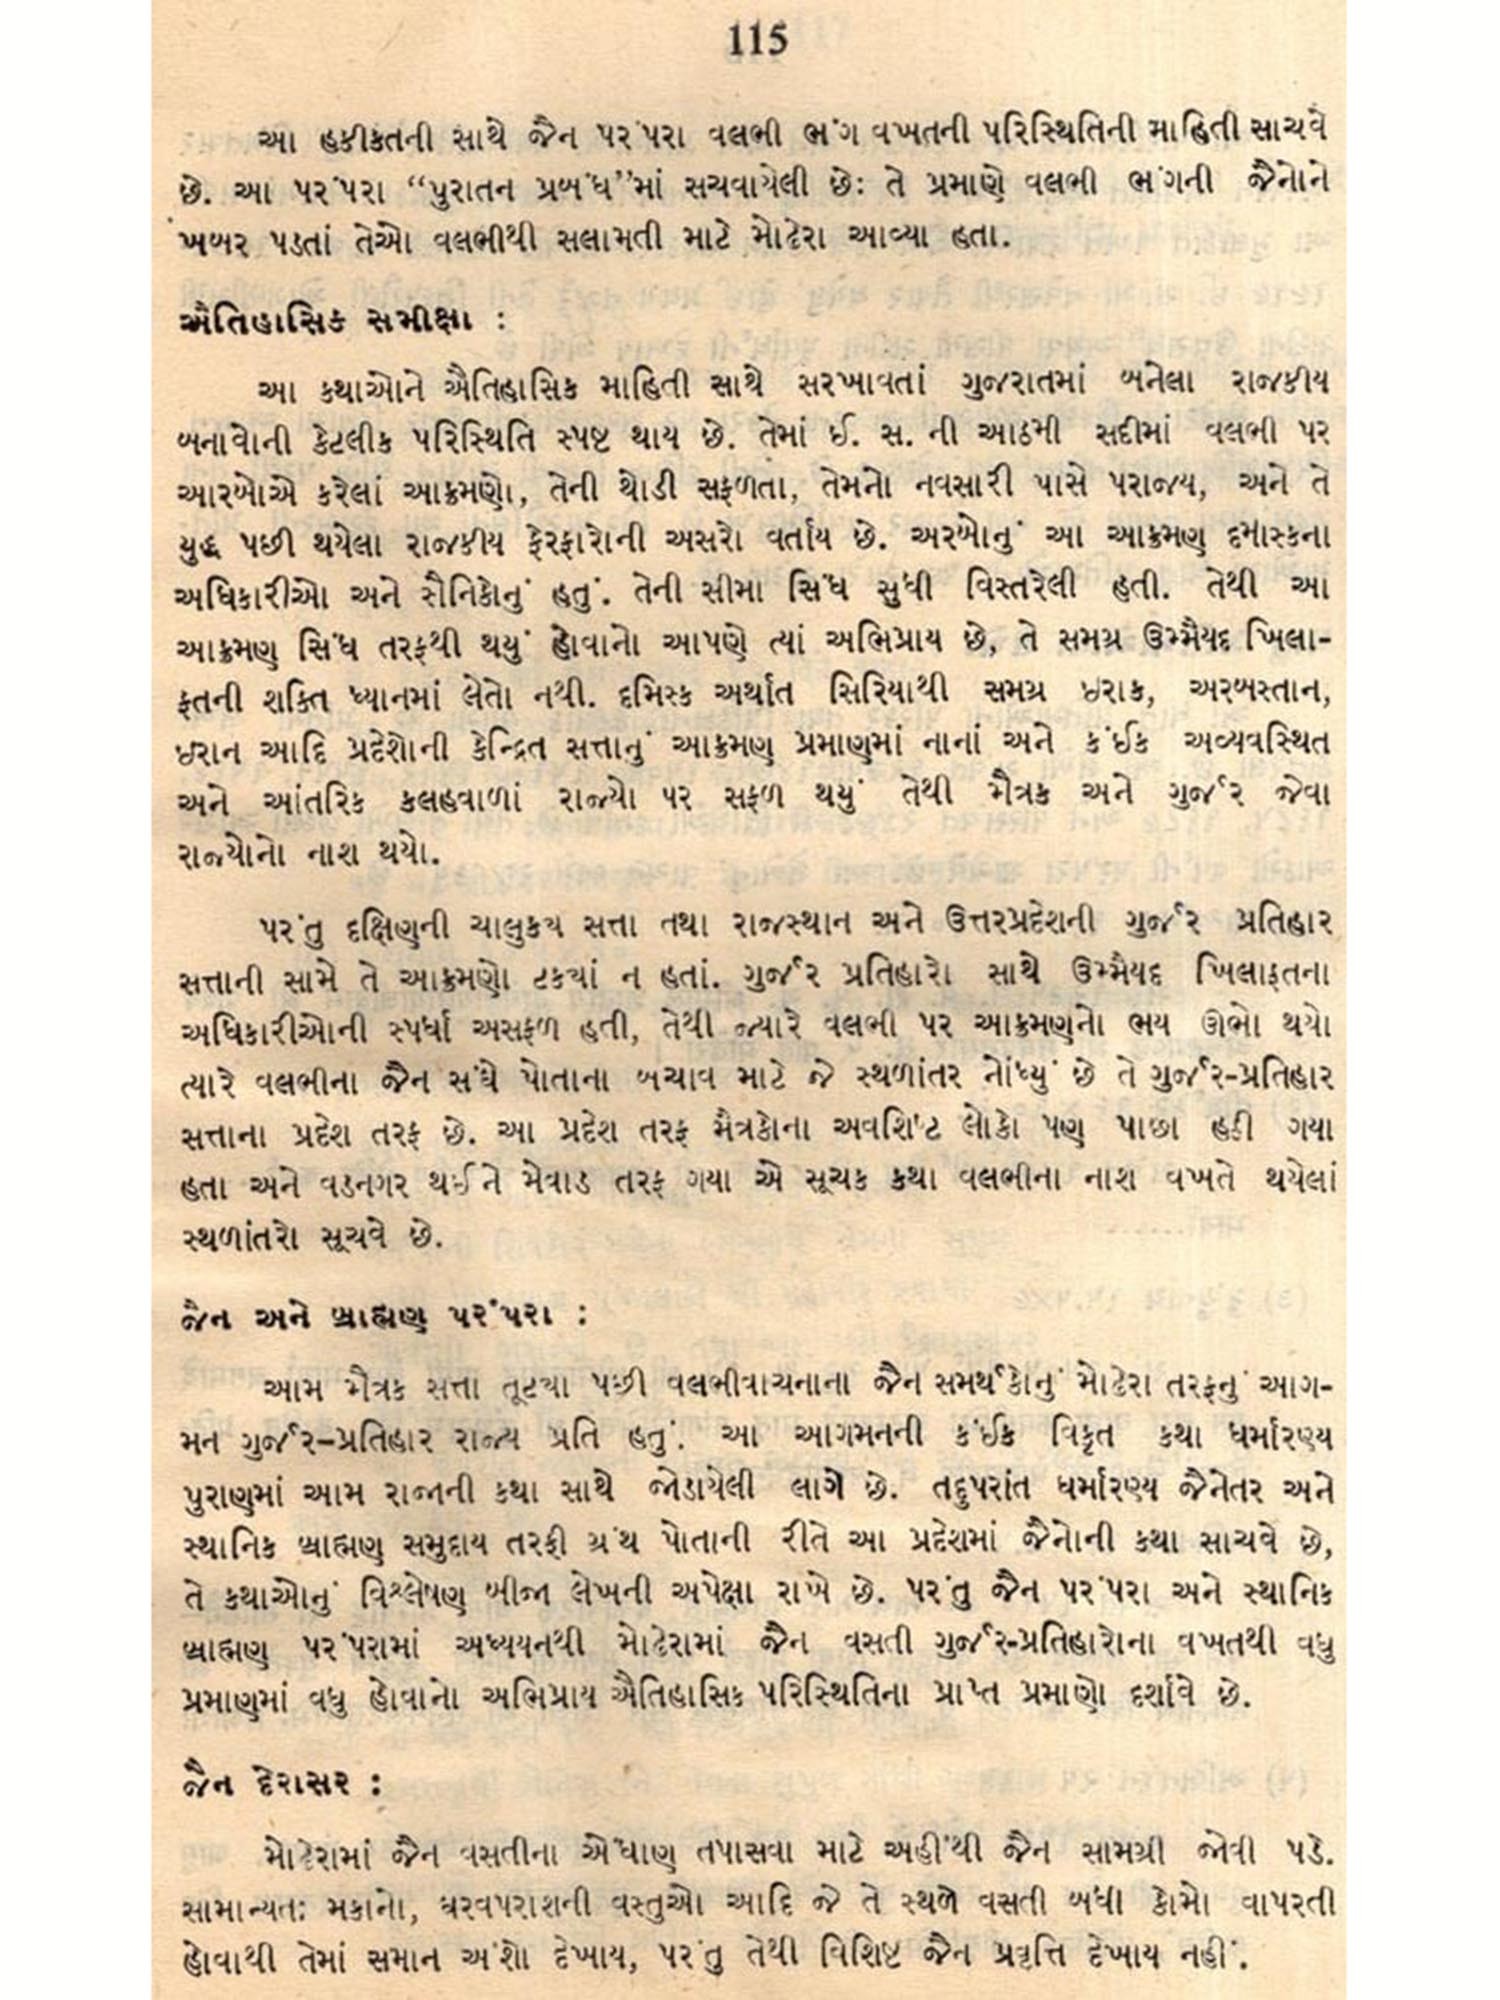 115
આ હકીકતની સાથે જૈન પરંપરા વલભી ભંગ વખતની પરિસ્થિતિની માહિતી સાચવે
છે. આ પરંપરા “પુરાતન પ્રબંધ”માં સચવાયેલી છેઃ તે પ્રમાણે વલભી ભંગની જૈનોને
ખબર પડતાં તેઓ વલભીથી સલામતી માટે મોઢેરા આવ્યા હતા.
ઐતિહાસિક સમીક્ષા :
આ કથાઓને ઐતિહાસિક માહિતી સાથે સરખાવતાં ગુજરાતમાં બનેલા રાજકીય
બનાવોની કેટલીક પરિસ્થિતિ સ્પષ્ટ થાય છે. તેમાં ઈ. સ. ની આઠમી સદીમાં વલભી પર
આરબોએ કરેલાં આક્રમણો, તેની થોડી સફળતા, તેમનો નવસારી પાસે પરાજય, અને તે
યુદ્ધ પછી થયેલા રાજકીય ફેરફારોની અસરો વર્તાય છે. અરબોનું આ આક્રમણ દમાસ્કના
અધિકારીઓ અને સૈનિકોનું હતું. તેની સીમા સિંધ સુધી વિસ્તરેલી હતી. તેથી આ
આક્રમણ સિંધ તરફથી થયું હોવાનો આપણે ત્યાં અભિપ્રાય છે, તે સમગ્ર ઉમ્મૈયદ ખિલા-
ફતની શક્તિ ધ્યાનમાં લેતો નથી. દમિસ્ક અર્થાત સિરિયાથી સમગ્ર ઇરાક, અરબસ્તાન,
ઇરાન આદિ પ્રદેશોની કેન્દ્રિત સત્તાનું આક્રમણ પ્રમાણમાં નાનાં અને કંઈક અવ્યવસ્થિત
અને આંતરિક કલહવાળાં રાજ્યો પર સફળ થયું તેથી મૈત્રક અને ગુર્જર જેવા
રાજ્યોનો નાશ થયો.
પરંતુ દક્ષિણની ચાલુક્ય સત્તા તથા રાજસ્થાન અને ઉત્તરપ્રદેશની ગુર્જર પ્રતિહાર
સત્તાની સામે તે આક્રમણો ટક્યાં ન હતાં. ગુર્જર પ્રતિહારો સાથે ઉમ્મૈયદ ખિલાફતના
અધિકારીઓની સ્પર્ધા અસફળ હતી, તેથી જ્યારે વલભી પર આક્રમણનો ભય ઊભો થયો
ત્યારે વલભીના જૈન સંઘે પોતાના બચાવ માટે જે સ્થળાંતર નોંધ્યું છે તે ગુર્જર-પ્રતિહાર
સત્તાના પ્રદેશ તરફ છે. આ પ્રદેશ તરફ મૈત્રકોના અવશિષ્ટ લોકો પણ પાછા હઠી ગયા
હતા અને વડનગર થઈને મેવાડ તરફ ગયા એ સૂચક કથા વલભીના નાશ વખતે થયેલાં
સ્થળાંતરો સૂચવે છે.
જૈન અને બ્રાહ્મણ પરંપરા :
આમ મૈત્રક સત્તા તૂટ્યા પછી વલભીવાચનાના જૈન સમર્થકોનું મોઢેરા તરફનું આગ-
મન ગુર્જર-પ્રતિહાર રાજ્ય પ્રતિ હતું. આ આગમનની કંઈક વિકૃત કથા ધર્મારણ્ય
પુરાણમાં આમ રાજાની કથા સાથે જોડાયેલી લાગે છે. તદુપરાંત ધર્મારણ્ય જૈનેતર અને
સ્થાનિક બ્રાહ્મણ સમુદાય તરફી ગ્રંથ પોતાની રીતે આ પ્રદેશમાં જૈનોની કથા સાચવે છે,
તે કથાઓનું વિશ્લેષણ બીજા લેખની અપેક્ષા રાખે છે. પરંતુ જૈન પરંપરા અને સ્થાનિક
બ્રાહ્મણ પરંપરામાં અધ્યયનથી મોઢેરામાં જૈન વસતી ગુર્જર-પ્રતિહારોના વખતથી વધુ
પ્રમાણમાં વધુ હોવાનો અભિપ્રાય ઐતિહાસિક પરિસ્થિતિના પ્રાપ્ત પ્રમાણો દર્શાવે છે.
જૈન દેરાસર :
મોઢેરામાં જૈન વસતીના એંધાણ તપાસવા માટે અહીંથી જૈન સામગ્રી જોવી પડે.
સામાન્યતઃ મકાનો, ઘરવપરાશની વસ્તુઓ આદિ જે તે સ્થળે વસતી બધી કોમો વાપરતી
હોવાથી તેમાં સમાન અંશો દેખાય, પરંતુ તેથી વિશિષ્ટ જૈન પ્રવૃત્તિ દેખાય નહીં.